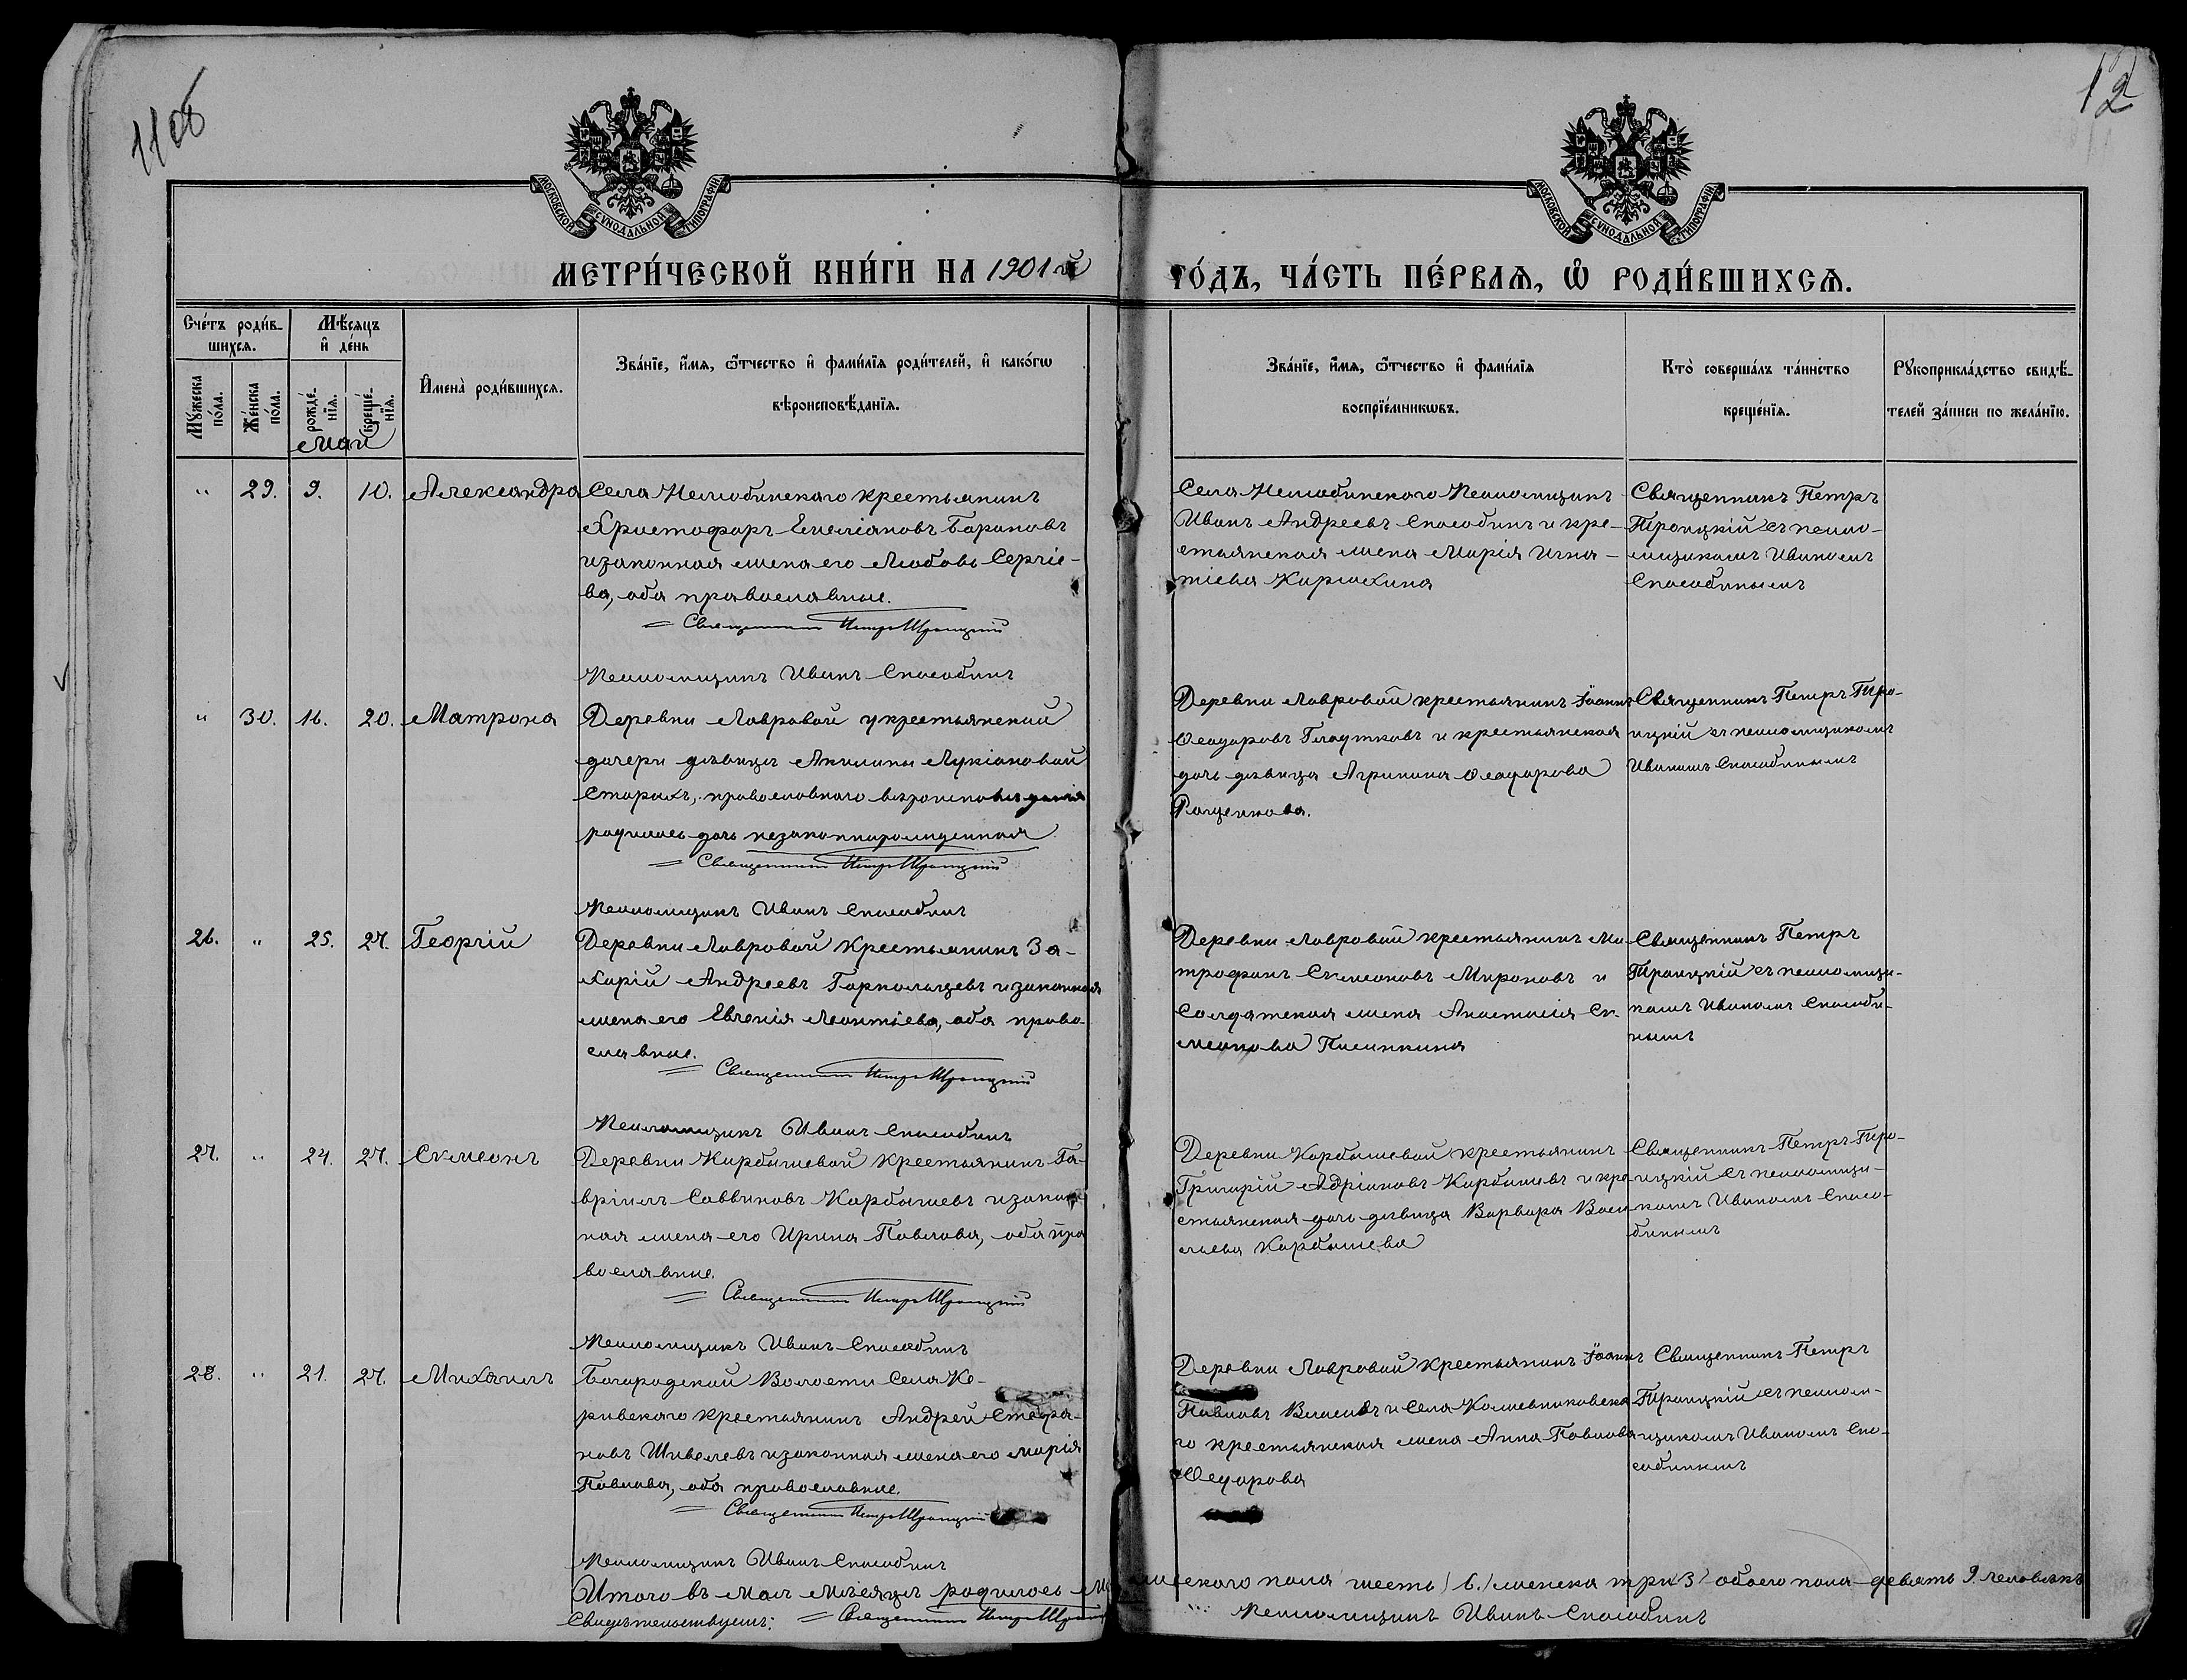 11 об
12
МОСКОВСКОЙ СѴНОДАЛЬНОЙ ТИПОГРАФІИ
МОСКОВСКОЙ СѴНОДАЛЬНОЙ ТИПОГРАФІИ
МЕТРИ́ЧЕСКОЙ КНИ́ГИ НА 1901 й ГО́ДЪ, ЧА́СТЬ ПЕ́РВАѦ, Ѡ҆ РОДИ́ВШИХСѦ.
Сче́тъ роди́в-
шихсѧ.
Мѣ́сѧцъ
и҆ де́нь
Мꙋ́жеска
по́ла.
Же́нска
по́ла.
рожде́-
нїѧ.
креще́-
нїѧ.
Май
И҆мена̀ роди́вшихсѧ.
Зва́нїе, и҆́мѧ, ѻ҆́тчество и҆ фами́лїѧ роди́телей, и҆ како́гѡ
вѣроисповѣ́данїѧ.
Зва́нїе, и҆́мѧ, ѻ҆́тчество и҆ фами́лїѧ
воспрїе́мникѡвъ.
Кто̀ соверша́лъ та́инство
креще́нїѧ.
Рꙋкоприкла́дство свидѣ́-
телей за́писи по жела́нїю.
" 29. 9. 10. Александра
Села Нелюбинскаго крестьянинъ
Христофоръ Емеліановъ Барановъ
и законная жена его Любовь Сергіе-
ва, оба православные.
Священникъ Петръ Троицкій
Псаломщикъ Иванъ Способинъ
Села Нелюбинскаго Псаломщикъ
Иванъ Андреевъ Способинъ и кре-
стьянская жена Марія Игна-
тіева
Священникъ Петръ
Троицкій съ псало-
мщикомъ Иваномъ
Способинымъ
" 30. 16. 20. Матрона
Деревни Лавровой у крестьянской
дочери дѣвицы Акилины Лукіановой
Старихъ, православнаго вѣроисповѣданія
родилась дочь незаконнорожденная
Священникъ Петръ Троицкій
Псаломщикъ Иванъ Способинъ
Деревни Лавровой крестьянинъ Іоаннъ
Ѳеодоровъ Гладутковъ и крестьянская
дочь дѣвица Агрипина Ѳеодорова
Рощенкова.
Священникъ Петръ Тро-
ицкій съ псаломщикомъ
Иваномъ Способинымъ
26. " 25. 27. Георгій
Деревни Лавровой крестьянинъ За-
харій Андреевъ и законная
жена его Евгенія Леонтіева, оба право-
славные.
Священникъ Петръ Троицкій
Псаломщикъ Иванъ Способинъ
Деревни Лавровой крестьянинъ Ми-
трофанъ Симеоновъ Мироновъ и
Солдатская жена Анастасія Си-
меонова
Священникъ Петръ
Троицкій съ псаломщи-
комъ Иваномъ Способи-
нымъ
27. " 24. 27. Симеонъ
Деревни Карбышевой крестьянинъ Га-
вріилъ Саввиновъ Карбышевъ и закон
ная жена его Ирина Павлова, оба пра
вославные.
Священникъ Петръ Троицкій
Псаломщикъ Иванъ Способинъ
Деревни Карбышевой крестьянинъ
Григорій Адріановъ Карбышевъ и кре
стьянская дочь дѣвица Варвара Васи
льева Карбышева
Священникъ Петръ Тро-
ицкій съ псаломщи-
комъ Иваномъ Спосо-
бинымъ
28. " 21. 27. Михаилъ
Богородской Волости Села Ке-
ривскаго крестьянинъ Андрей Стефа-
новъ и законная жена его Марія
Павлова, оба православные.
Священникъ Петръ Троицкій
Псаломщикъ Иванъ Способинъ
Деревни Лавровой крестьянинъ Іоаннъ
Павловъ и Села Колпашниковска
го крестьянская жена Анна Павлова
Ѳедорова
Священникъ Петръ
Троицкій съ псалом-
щикомъ Иваномъ Спо-
собинымъ
Итого въ Маѣ Мѣсяцѣ родилось мужескаго пола шесть) 6.) женска три 3) обоего пола девять 9. человѣкъ
Свидѣтельствуемъ: Священникъ Петръ Троицкій
Псаломщикъ Иванъ Способинъ